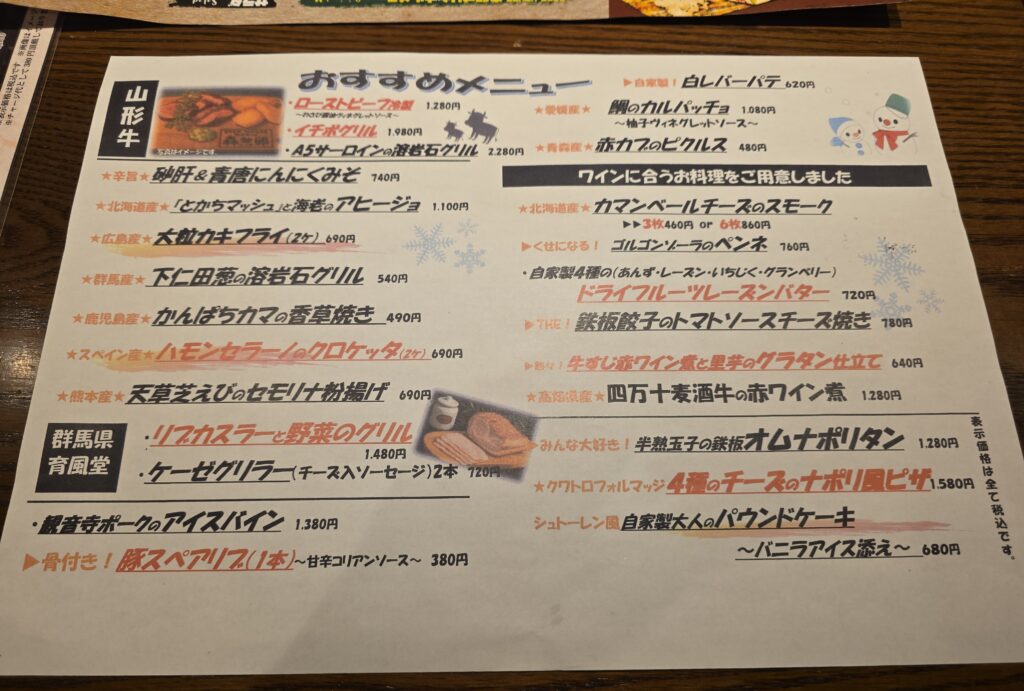 おすすめメニュー
山形牛
・ローストビーフ冷製 1.280円
・イチボグリル 1.980円
・A5サーロインの溶岩石グリル 2.280円
写真はイメージです
★辛旨★砂肝&青唐にんにくみそ 740円
★北海道産★「とかちマッシュ」と海老のアヒージョ 1.100円
★広島産★大粒カキフライ(2ケ) 690円
★群馬産★下仁田葱の溶岩石グリル 540円
★鹿児島産★かんぱちカマの香草焼き 490円
★スペイン産★ハモンセラーノのクロケッタ(2ケ) 690円
★熊本産★天草芝えびのセモリナ粉揚げ 690円
群馬県
育風堂
・リブカスラーと野菜のグリル
1.480円
・ケーゼグリラー(チーズ入ソーセージ)2本 720円
・観音寺ポークのアイスバイン 1.380円
▶骨付き!豚スペアリブ(1本)~甘辛コリアンソース~ 380円
▶自家製!白レバーパテ 620円
★愛媛産★鯛のカルパッチョ 1.080円
~柚子ヴィネグレットソース~
★青森産★赤カブのピクルス 480円
ワインに合うお料理をご用意しました
★北海道産★カマンベールチーズのスモーク
▶▶3枚460円 or 6枚860円
▶くせになる!ゴルゴンゾーラのペンネ 760円
・自家製4種の(あんず・レーズン・いちじく・グランベリー)
ドライフルーツレーズンバター 720円
▶THE!鉄板餃子のトマトソースチーズ焼き 780円
牛すじ赤ワイン煮と里芋のグラタン仕立て 640円
★高知県産★四万十麦酒牛の赤ワイン煮 1.280円
みんな大好き!半熟玉子の鉄板オムナポリタン 1.280円
★クワトロフォルマッジ4種のチーズのナポリ風ピザ 1.580円
シュトーレン風自家製大人のパウンドケーキ
~バニラアイス添え~ 680円
表示価格は全て税込です。